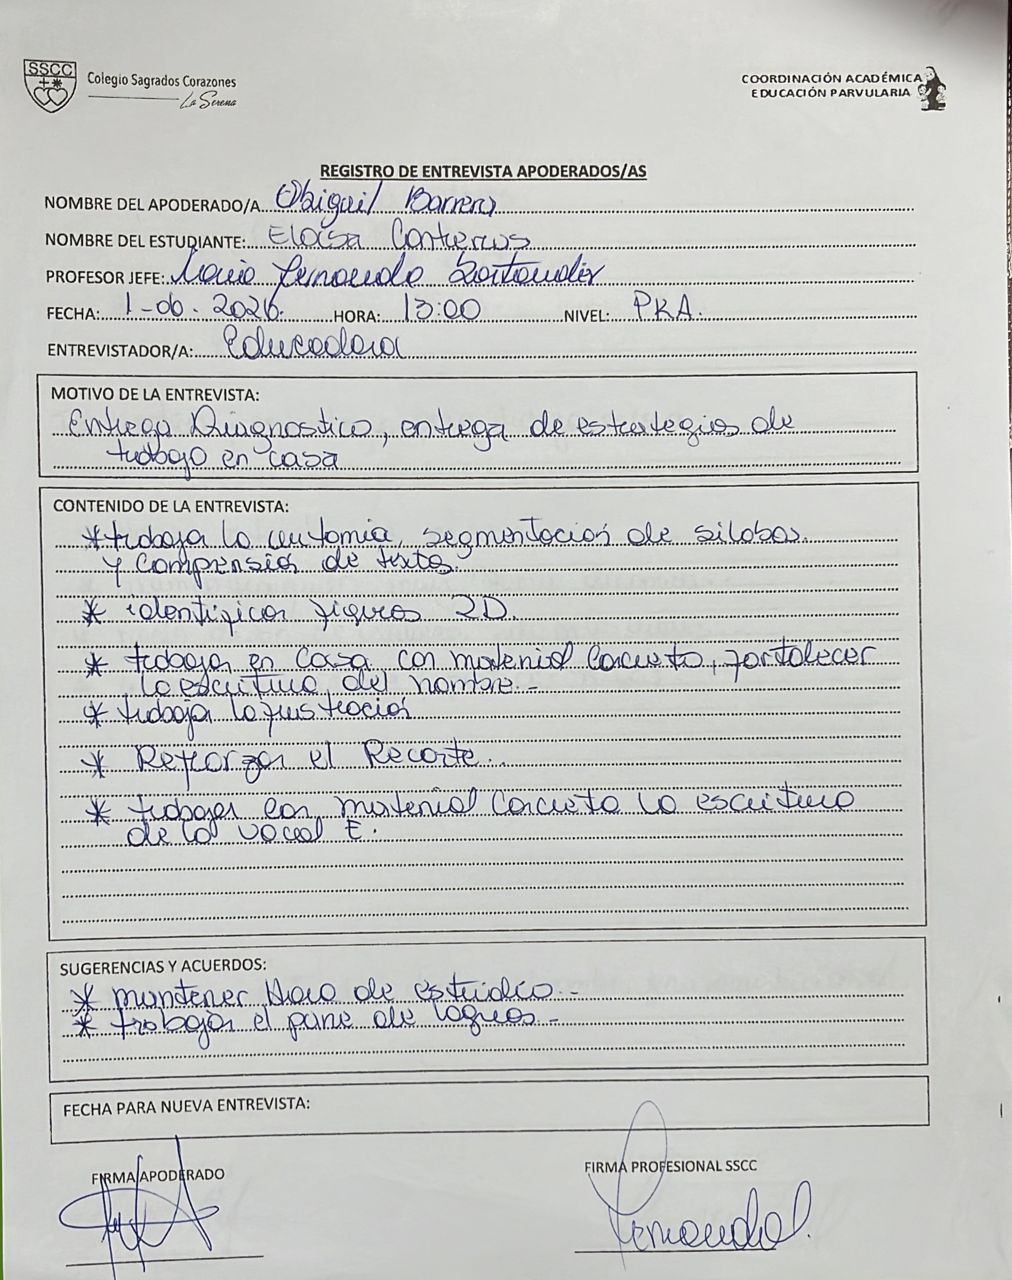 SSCC
Colegio Sagrados Corazones
La Serena
COORDINACIÓN ACADÉMICA
EDUCACIÓN PARVULARIA
REGISTRO DE ENTREVISTA APODERADOS/AS
NOMBRE DEL APODERADO/A Abigail Barrera
NOMBRE DEL ESTUDIANTE: Eloisa Contreras
PROFESOR JEFE: Maria Fernanda Santander
FECHA: 1-06.2026. HORA: 13:00 NIVEL: PKA.
ENTREVISTADOR/A: Educadora
MOTIVO DE LA ENTREVISTA:
Entrega Diagnostico, entrega de estrategias de
trabajo en casa
CONTENIDO DE LA ENTREVISTA:
* trabajar la segmentación de silabas.
y comprensión de textos.
* identificar figuras 2D.
* trabajar en casa con material concreto, fortalecer
la escritura del nombre.-
* trabajar la frustración
* Reforzar el Recorte.
* trabajar con material concreto la escritura
de la vocal E.
SUGERENCIAS Y ACUERDOS:
* mantener Hora de estudio.-
* trabajar el pane de logros.-
FECHA PARA NUEVA ENTREVISTA:
FIRMA APODERADO
FIRMA PROFESIONAL SSCC